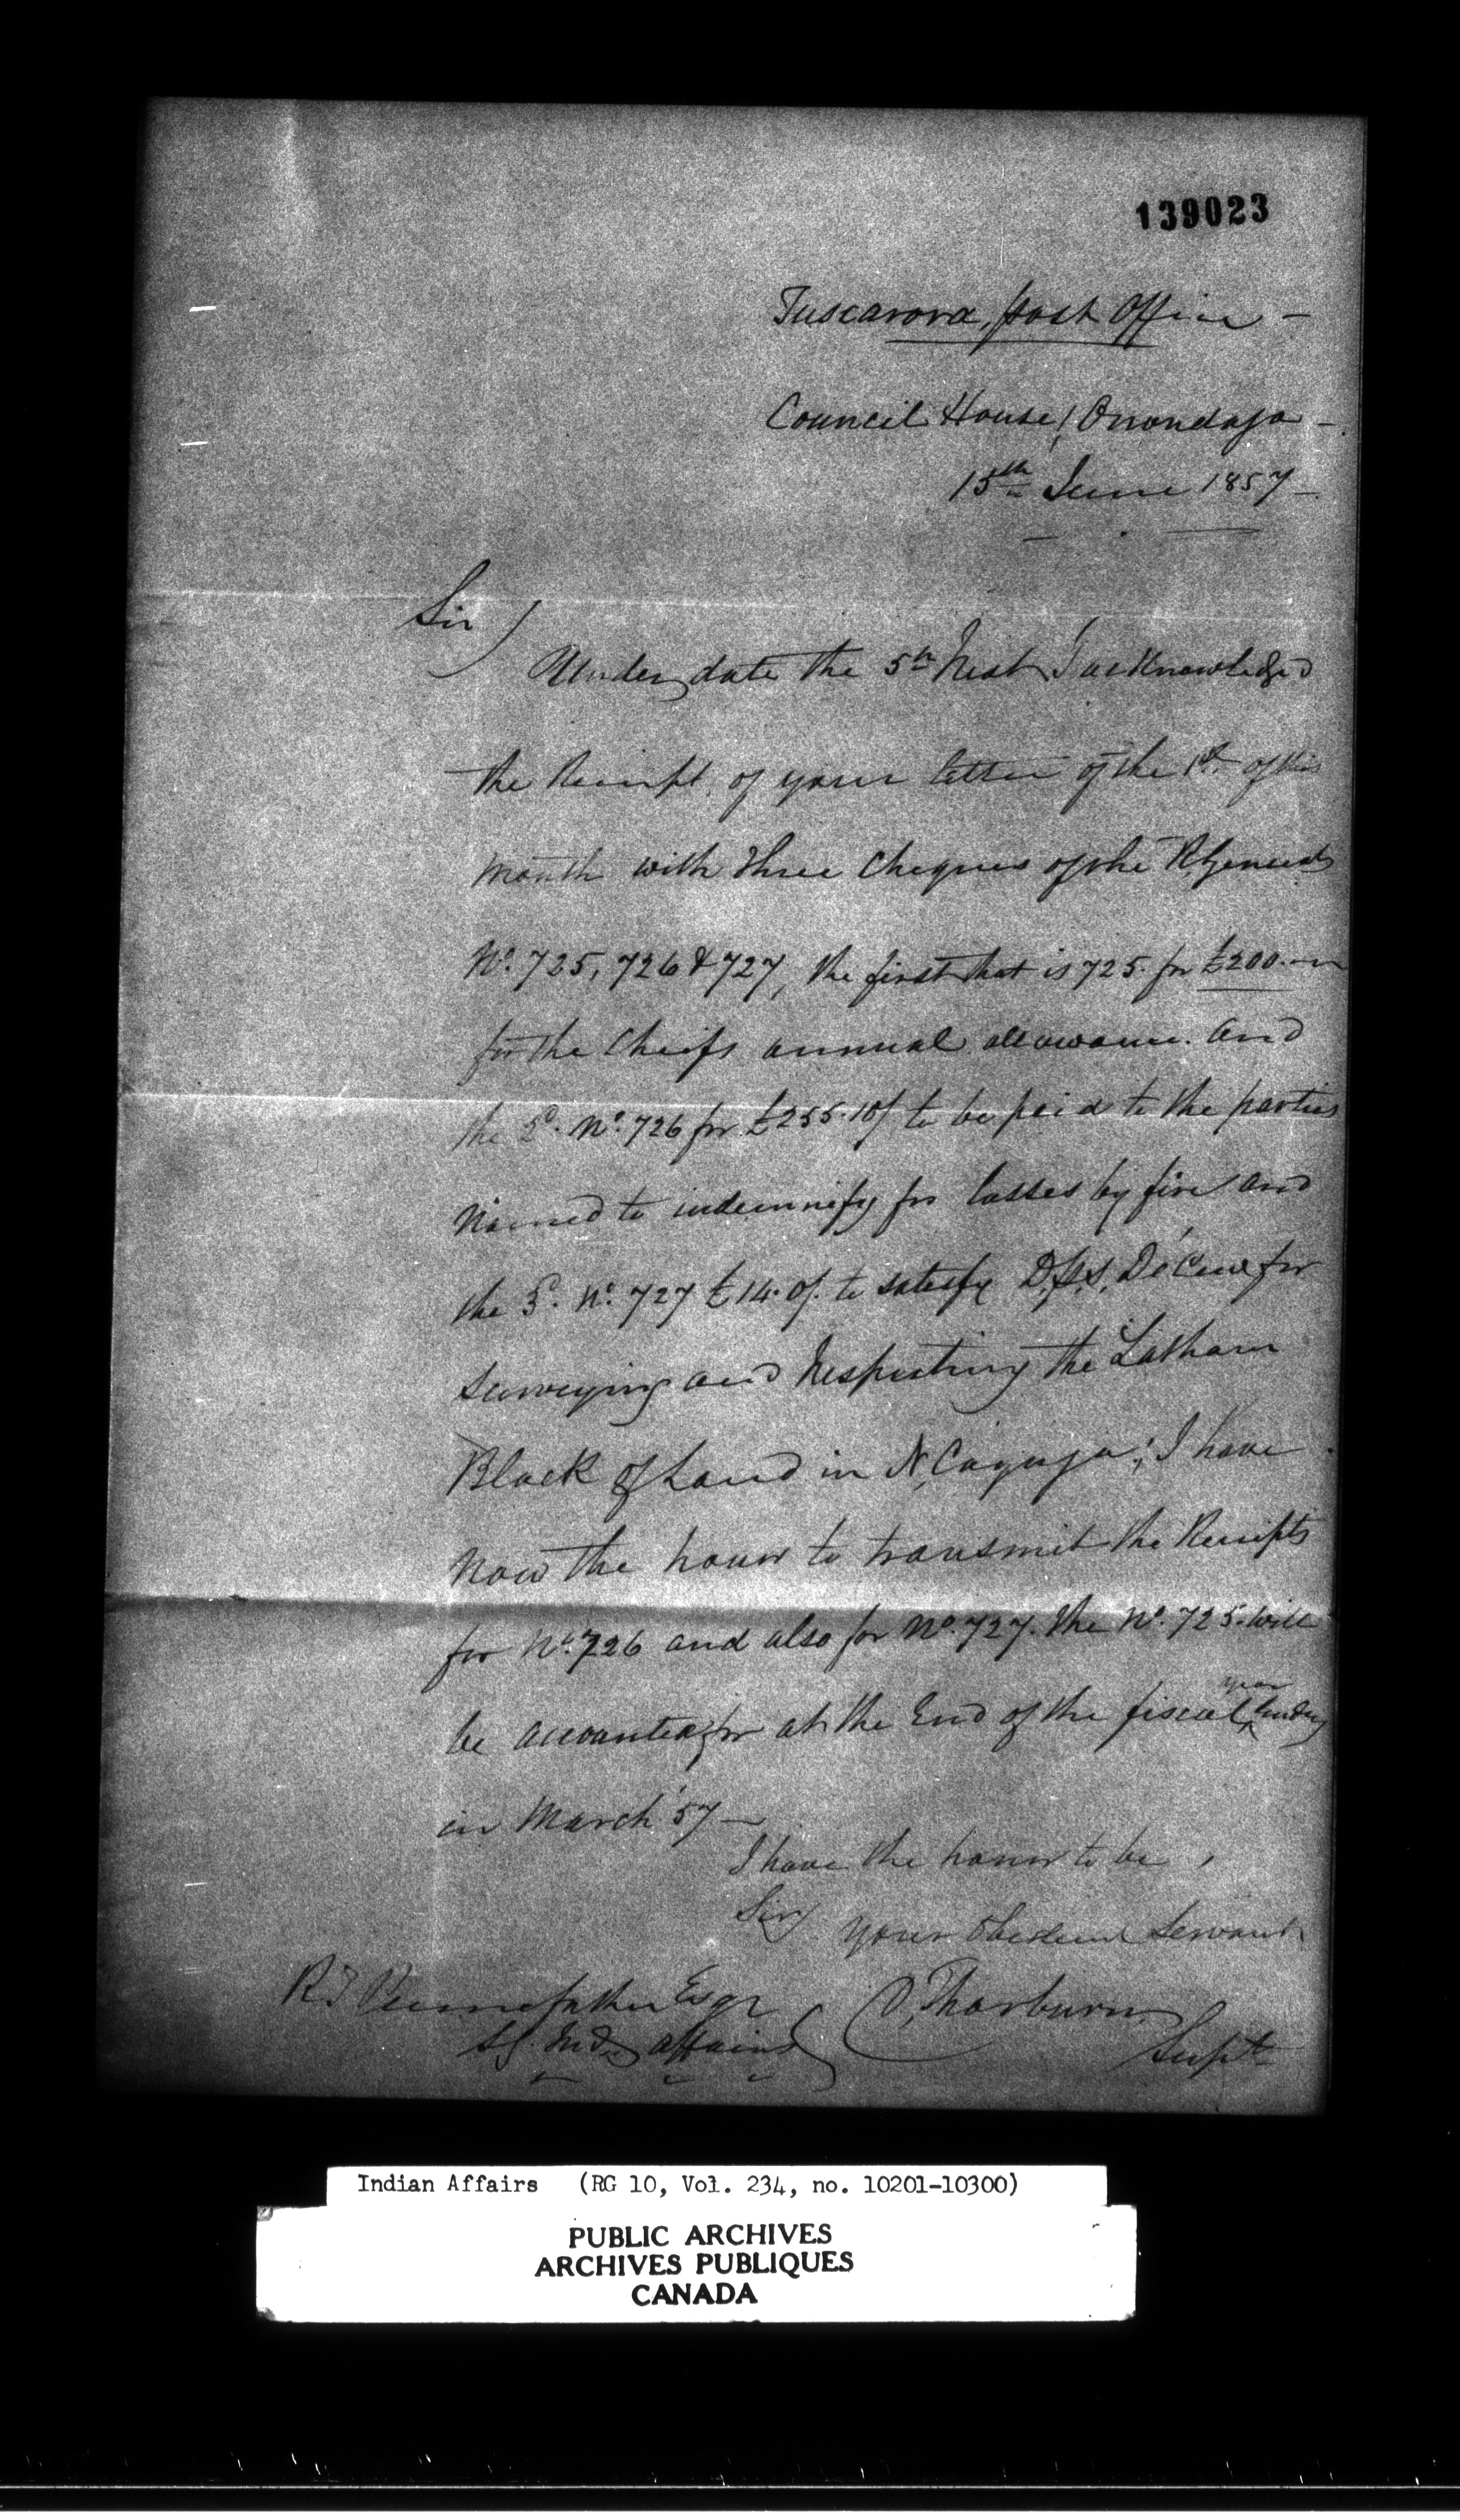 139023
Tuscarora, Post Office –
Council House, Onondaga –
15th June 1857 –
Sir
Under date the 5th Inst I acknowledged
the Receipt of your letter of the 1st of this
month with three Cheques of the R Generals
No. 725, 726 & 727, the first that is 725 for £200.–
for the Cheifs annual allowance. and
the 2d. No. 726 for £255.10/ to be paid to the parties
named to indemnify for losses by fire and
the 3d. No. 727 £14.0/. to satisfy D.P.S. DeCew for
surveying and Inspecting the Latham
Block of Land in N, Cayuga; I have
now the honor to transmit the Receipts
for No. 726 and also for No. 727. the No. 725. will
be accounted for at the End of the fiscal year Ending
in March '57 –
I have the honor to be,
Sir
your Obedient Servant
R T Pennefather Esqr
S G. Indn affairs
D, Thorburn
Supt
Indian Affairs (RG 10, Vol. 234, no. 10201-10300)
PUBLIC ARCHIVES
ARCHIVES PUBLIQUES
CANADA